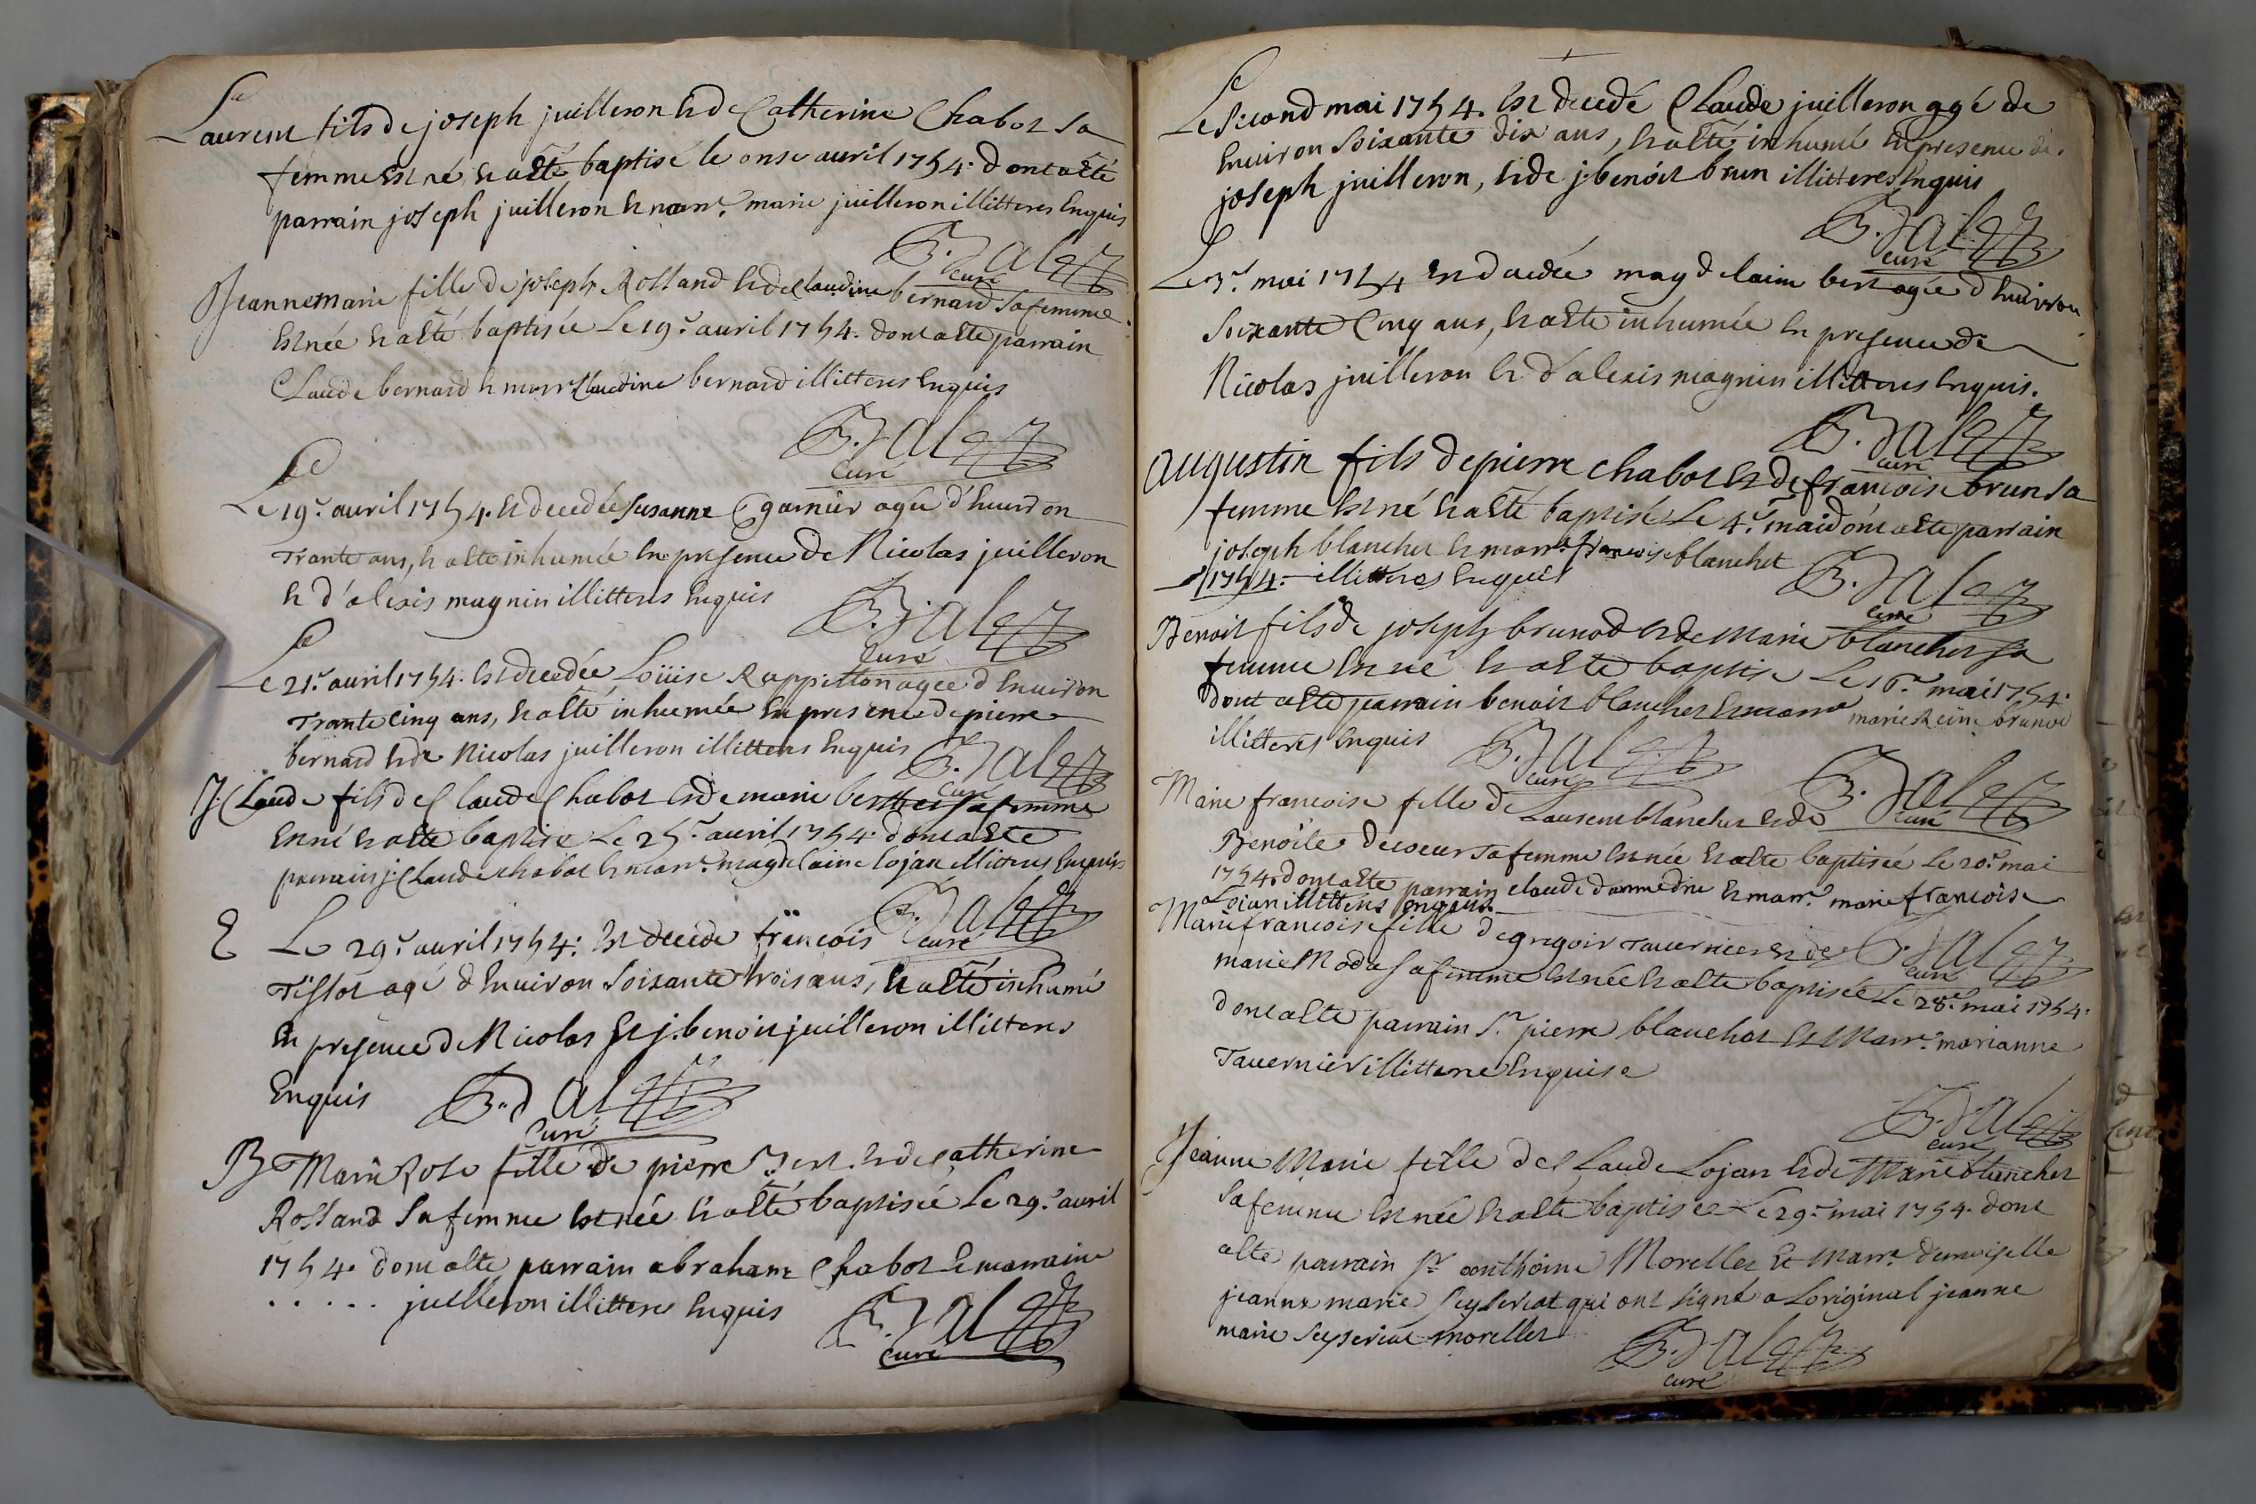 Laurent fils de joseph juilleron et de Catherine Chabot sa
femme est né et a été baptisé le onse avril 1754. dont a été
parrain joseph juilleron et marr.e marie juilleron illitteres enquis
B. Jalez
curé
Jeanne marie fille de joseph Rolland et de claudine bernard sa femme
est née et a été baptisée le 19.e avril 1754. dont a été parrain
Claude bernard et marr.e claudine bernard illitteres enquis
B. Jalez
curé
Le 19.e avril 1754. est decedée susanne garnier agée d'environ
trante ans, et a été inhumée en presence de Nicolas juilleron
et d'alexis magnin illitteres enquis
B. Jalez
curé
Le 21.e avril 1754. est decedée Loüise Rappillon agée d'environ
trante cinq ans, et a été inhumée en presence de pierre
bernard et de Nicolas juilleron illitteres enquis
B. Jalez
curé
J. Claude fils de Claude Chabot et de marie berthet sa femme
est né et a été baptisé le 25.e avril 1754. dont a été
parrain j. Claude chabot et marr.e magdelaine Lojan illitteres enquis
B. Jalez
curé
E Le 29.e avril 1754. est decedé francois
Tissot agé d'environ soixante trois ans, et a été inhumé
en presence de Nicolas et j. benoit juilleron illitteres
enquis
B. Jalez
curé
B Marie Rose fille de pierre et de catherine
Rolland sa femme est née et a été baptisée le 29.e avril
1754. dont a été parrain abraham Chabot et marraine
..... juilleron illitteres enquis
B. Jalez
curé
Le second mai 1754. est decedé Claude juilleron agé de
environ soixante dix ans, et a été inhumé en presence de
joseph juilleron, et de j. benoit brun illitteres enquis
B. Jalez
curé
Le 3.e mai 1754 est decedée magdelaine agée d'environ
soixante cinq ans, et a été inhumée en presence de
Nicolas juilleron et d'alexis magnin illitteres enquis.
B. Jalez
curé
augustin fils de pierre chabot et de francoise brun sa
femme est né et a été baptisé le 4.e mai dont a été parrain
joseph blanchet et marr.e francoise blanchet
1754. illitteres enquis
B. Jalez
curé
Benoit fils de joseph brunod et de marie blanchet sa
femme est né et a été baptisé le 16.e mai 1754.
dont a été parrain benoit blanchet et marr.e marie Reine brunod
illitteres enquis
B. Jalez
curé
Marie francoise fille de Laurent blanchet et de
B. Jalez
curé
Benoite decoeur sa femme est née et a été baptisée le 20.e mai
1754. dont a été parrain claude et marr.e marie francoise
Lojan illitteres enquis
Marie francoise fille de gregoir tavernier et de
B. Jalez
curé
marie sa femme est née et a été baptisée le 28.e mai 1754.
dont a été parrain S.r pierre blanchot et Marr.e marianne
Tavernier illitterre enquise
B. Jalez
curé
Jeanne Marie fille de Claude Lojan et de Marie blanchet
sa femme est née et a été baptisée le 29.e mai 1754. dont
a été parrain S.r anthoine Morellet et Marr.e demoiselle
jeanne marie seyseriat qui ont signé a Loriginal jeanne
marie seyseriat morellet
B. Jalez
curé